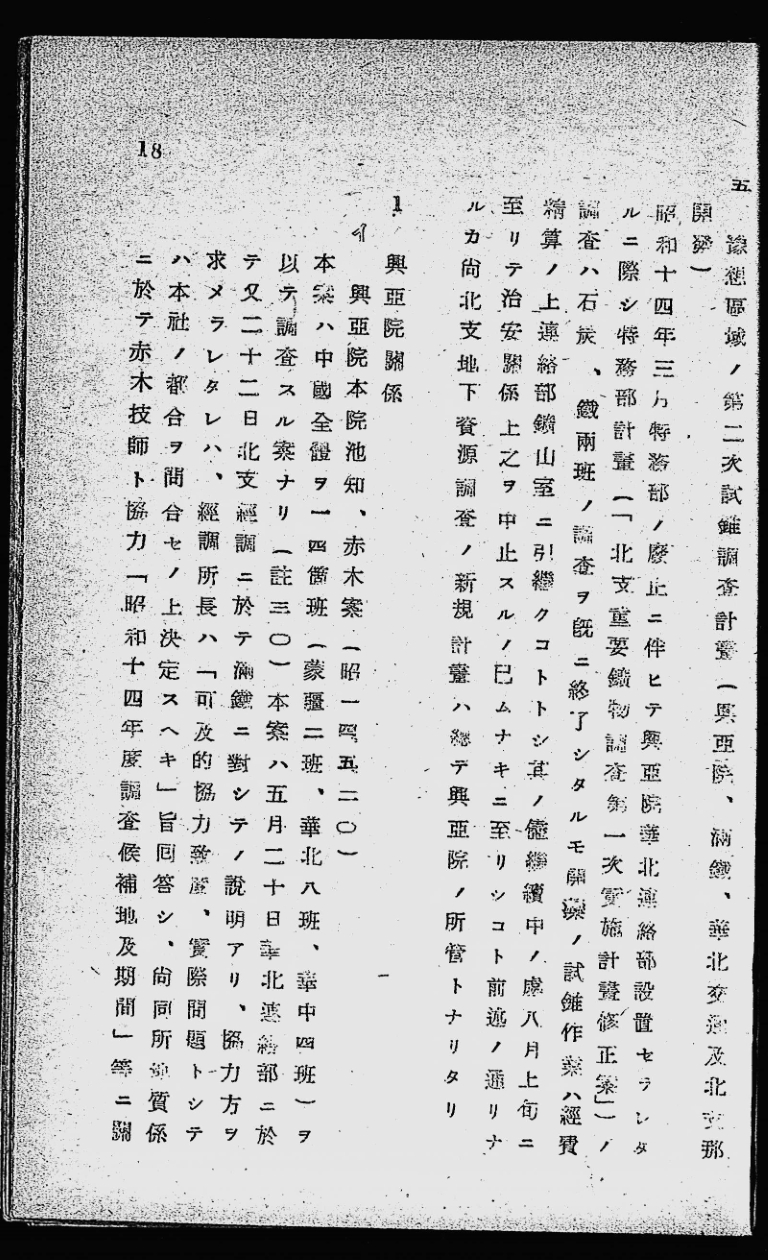 五　豫想區域ノ第二次試錐調査計畫（興亞院、滿鐵、華北交通及北支那
開發）
昭和十四年三月特務部ノ廢止ニ伴ヒテ興亞院華北連絡部設置セラレタ
ルニ際シ特務部計畫（「北支重要鑛物調査第一次實施計畫修正案」）ノ
調査ハ石炭、鐵兩班ノ調査ヲ既ニ終了シタルモ開灤ノ試錐作業ハ經費
精算ノ上連絡部鑛山室ニ引繼クコトトシ其ノ儘繼續中ノ處八月上旬ニ
至リテ治安關係上之ヲ中止スルノ已ムナキニ至リシコト前述ノ通リナ
ルカ尙北支地下資源調査ノ新規計畫ハ總テ興亞院ノ所管トナリタリ
1　興亞院關係
イ　興亞院本院池知、赤木案（昭一四五二〇）
本案ハ中國全體ヲ一四箇班（蒙疆二班、華北八班、華中四班）ヲ
以テ調査スル案ナリ（註三〇）本案ハ五月二十日華北連絡部ニ於
テ又二十二日北支經調ニ於テ滿鐵ニ對シテノ說明アリ、協力方ヲ
求メラレタレハ、經調所長ハ「可及的協力致度、實際問題トシテ
ハ本社ノ都合ヲ問合セノ上決定スヘキ」旨回答シ、尙同所地質係
ニ於テ赤木技師ト協力「昭和十四年度調査候補地及期間」等ニ關
18